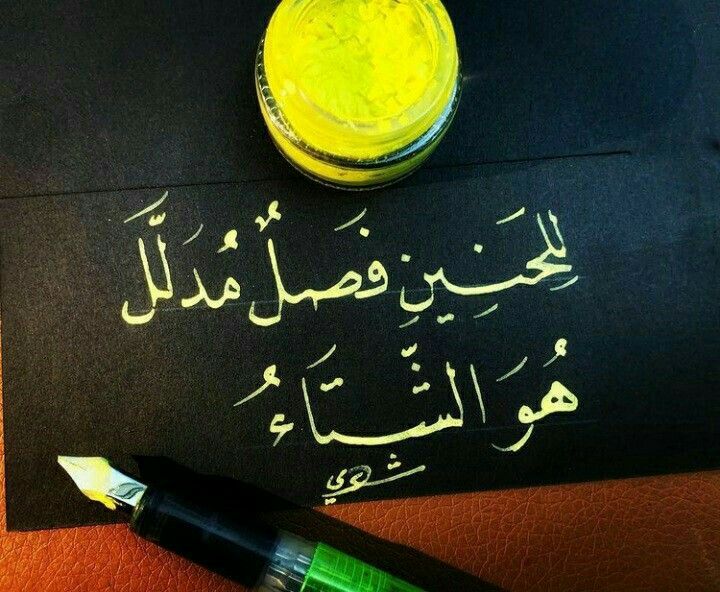 لِلحَنِينِ فَصلٌ مُدَلَّل
هُوَ الشِّتَاءُ